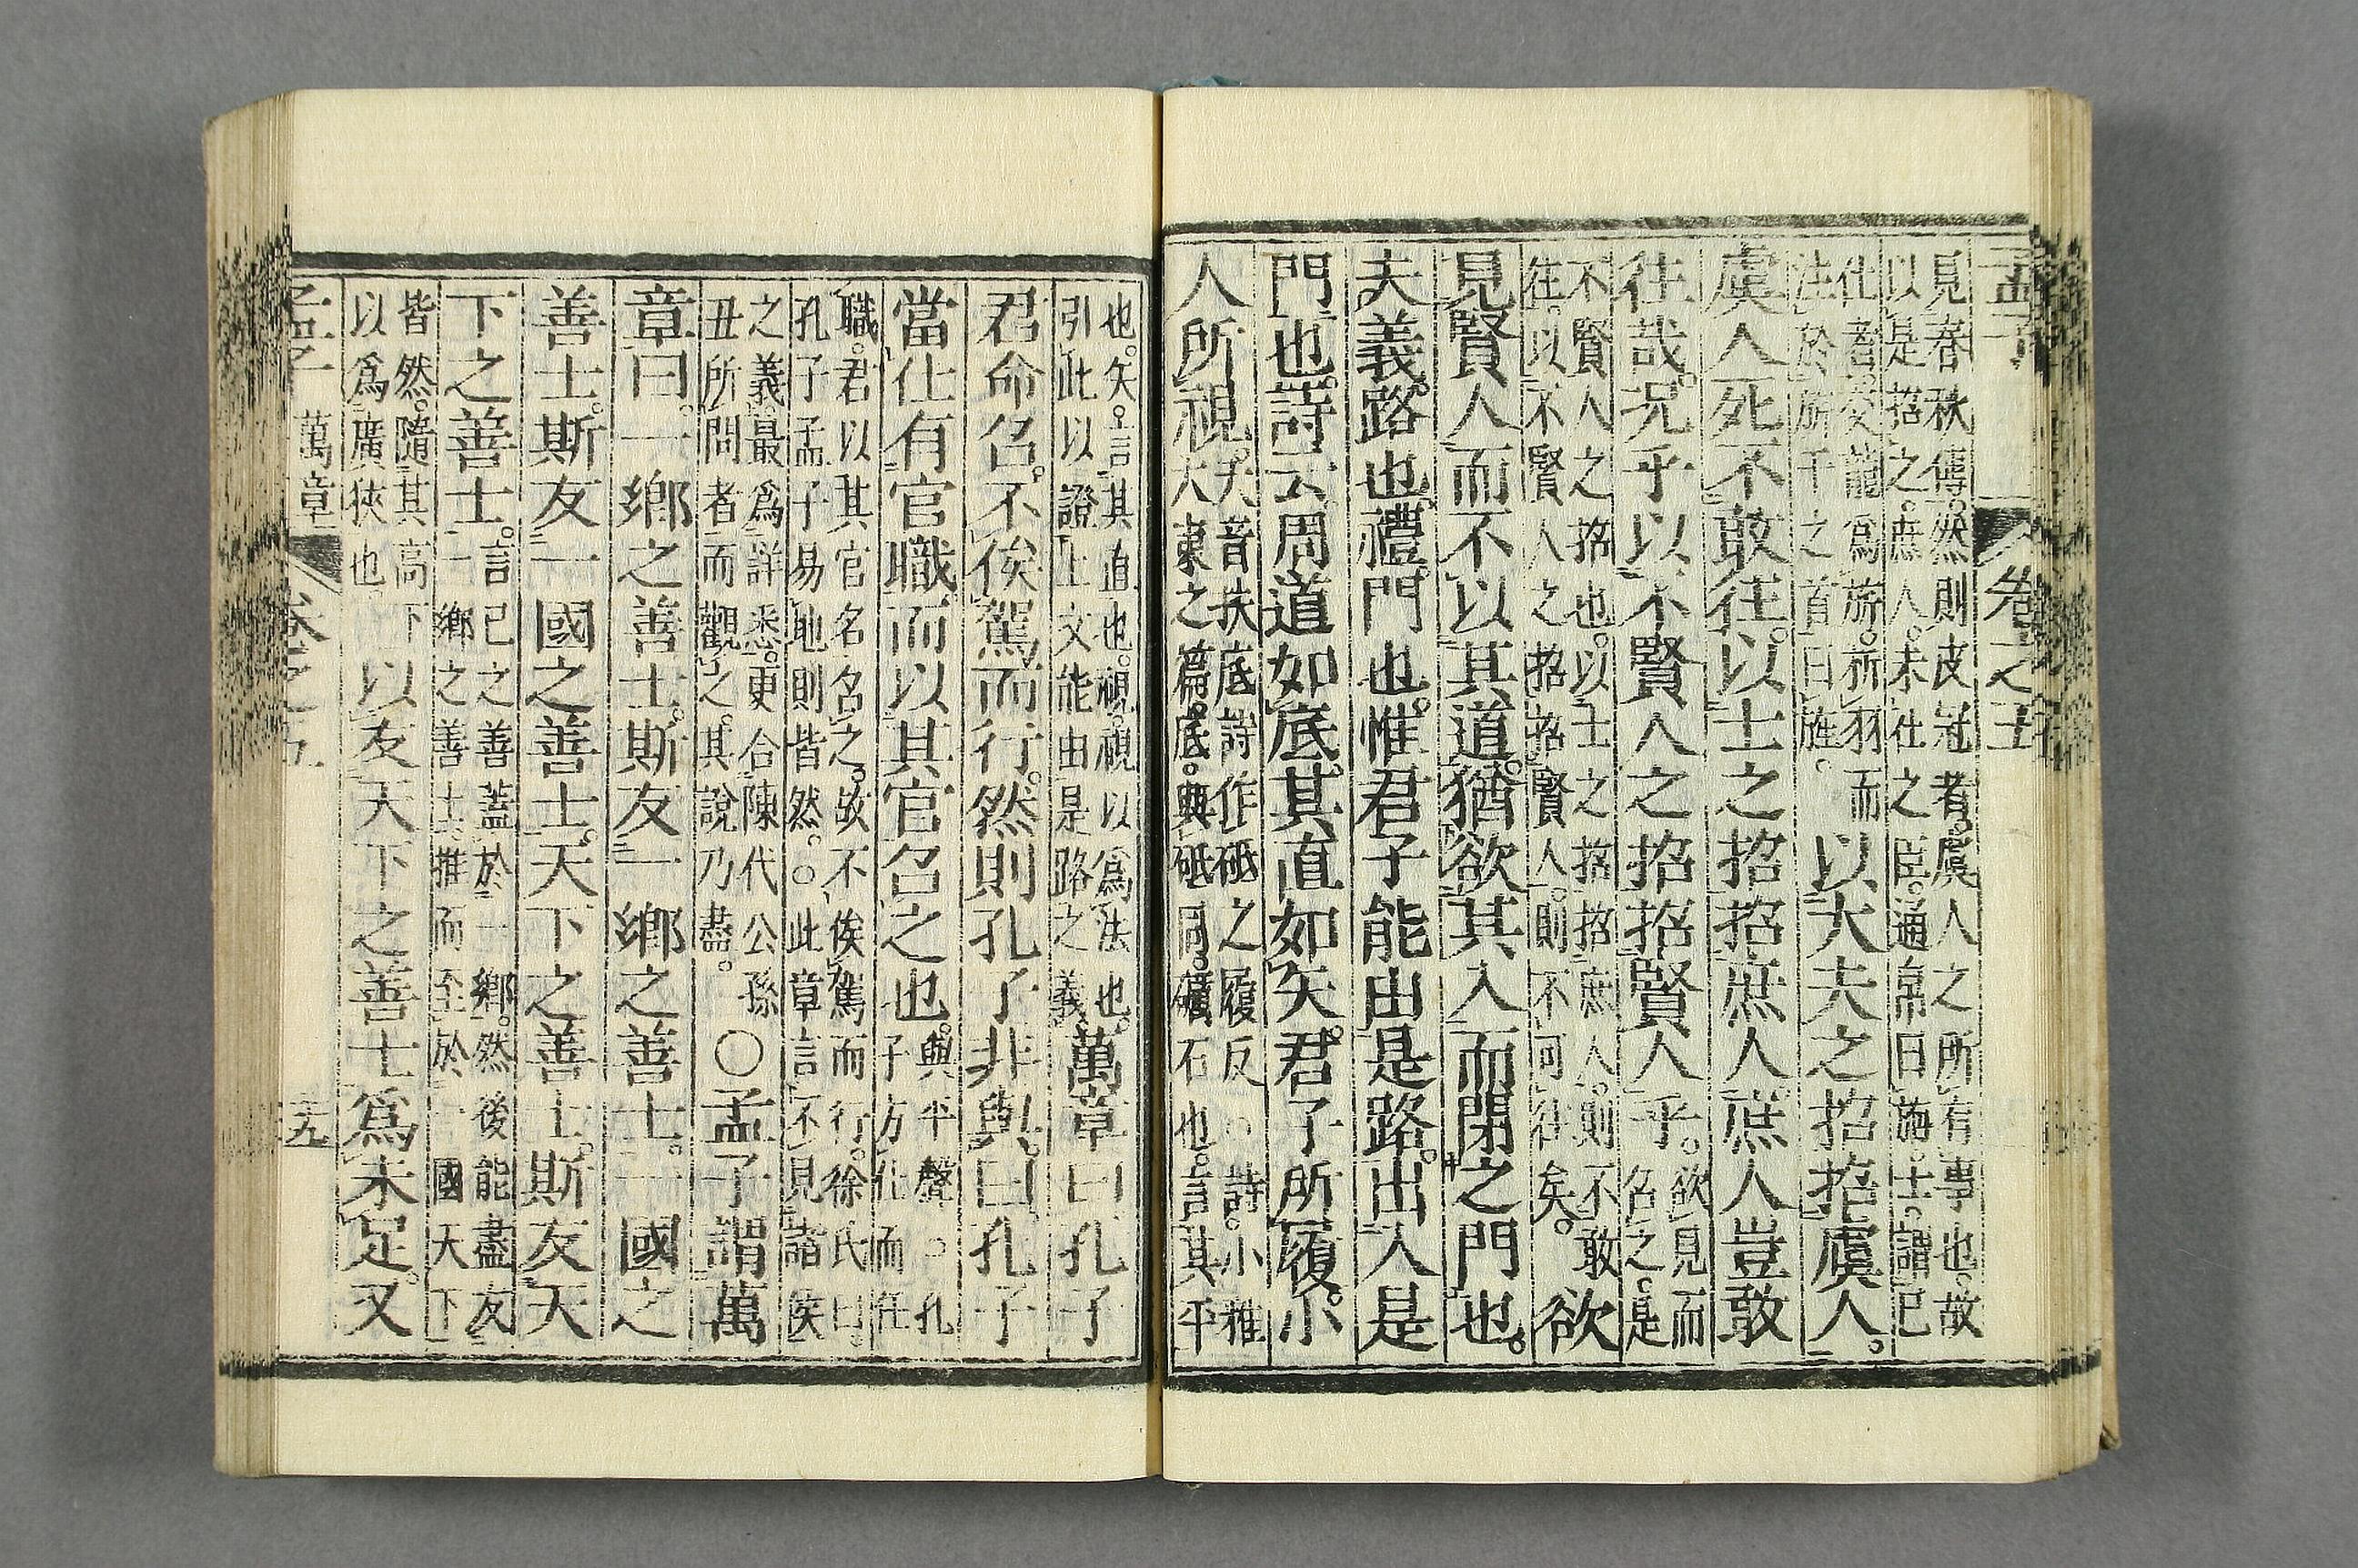 孟子 卷之五
見春秋傳。然則皮冠者。虞人之所有事也。故
以是招之。庶人。未仕之臣。通帛曰旃。士。謂已
仕者。交龍爲旂。析羽而
注於旂干之首曰旌。
以大夫之招招虞人。
虞人死不敢往。以士之招招庶人。庶人豈敢
往哉。況乎以不賢人之招招賢人乎。
欲見而
召之。是
不賢人之招也。以士之招招庶人。則不敢
往。以不賢人之招招賢人。則不可往矣。
欲
見賢人而不以其道。猶欲其入而閉之門也。
夫義。路也。禮。門也。惟君子能由是路。出入是
門也。詩云。周道如底。其直如矢。君子所履。小
人所視。
夫音扶底詩作砥之履反○詩。小雅
大東之篇。底。與砥同。礪石也。言其平
也。矢。言其直也。視。視以爲法也。
引此以證上文能由是路之義。
萬章曰孔子
君命召。不俟駕而行。然則孔子非與。曰。孔子
當仕有官職。而以其官召之也。
與平聲○孔
子方仕而任
職。君以其官名召之。故不俟駕而行。徐氏曰。
孔子孟子易地則皆然。○此章言不見諸侯
之義。最爲詳悉。更合陳代公孫
丑所問者而觀之。其說乃盡。
○孟子謂萬
章曰。一鄉之善士。斯友一鄉之善士。一國之
善士。斯友一國之善士。天下之善士。斯友天
下之善士。
言己之善蓋於一鄉。然後能盡友
一鄉之善士。推而至於一國天下
皆然。隨其高下
以爲廣狹也。
以友天下之善士爲未足。又
孟子 萬章 卷之五 三九